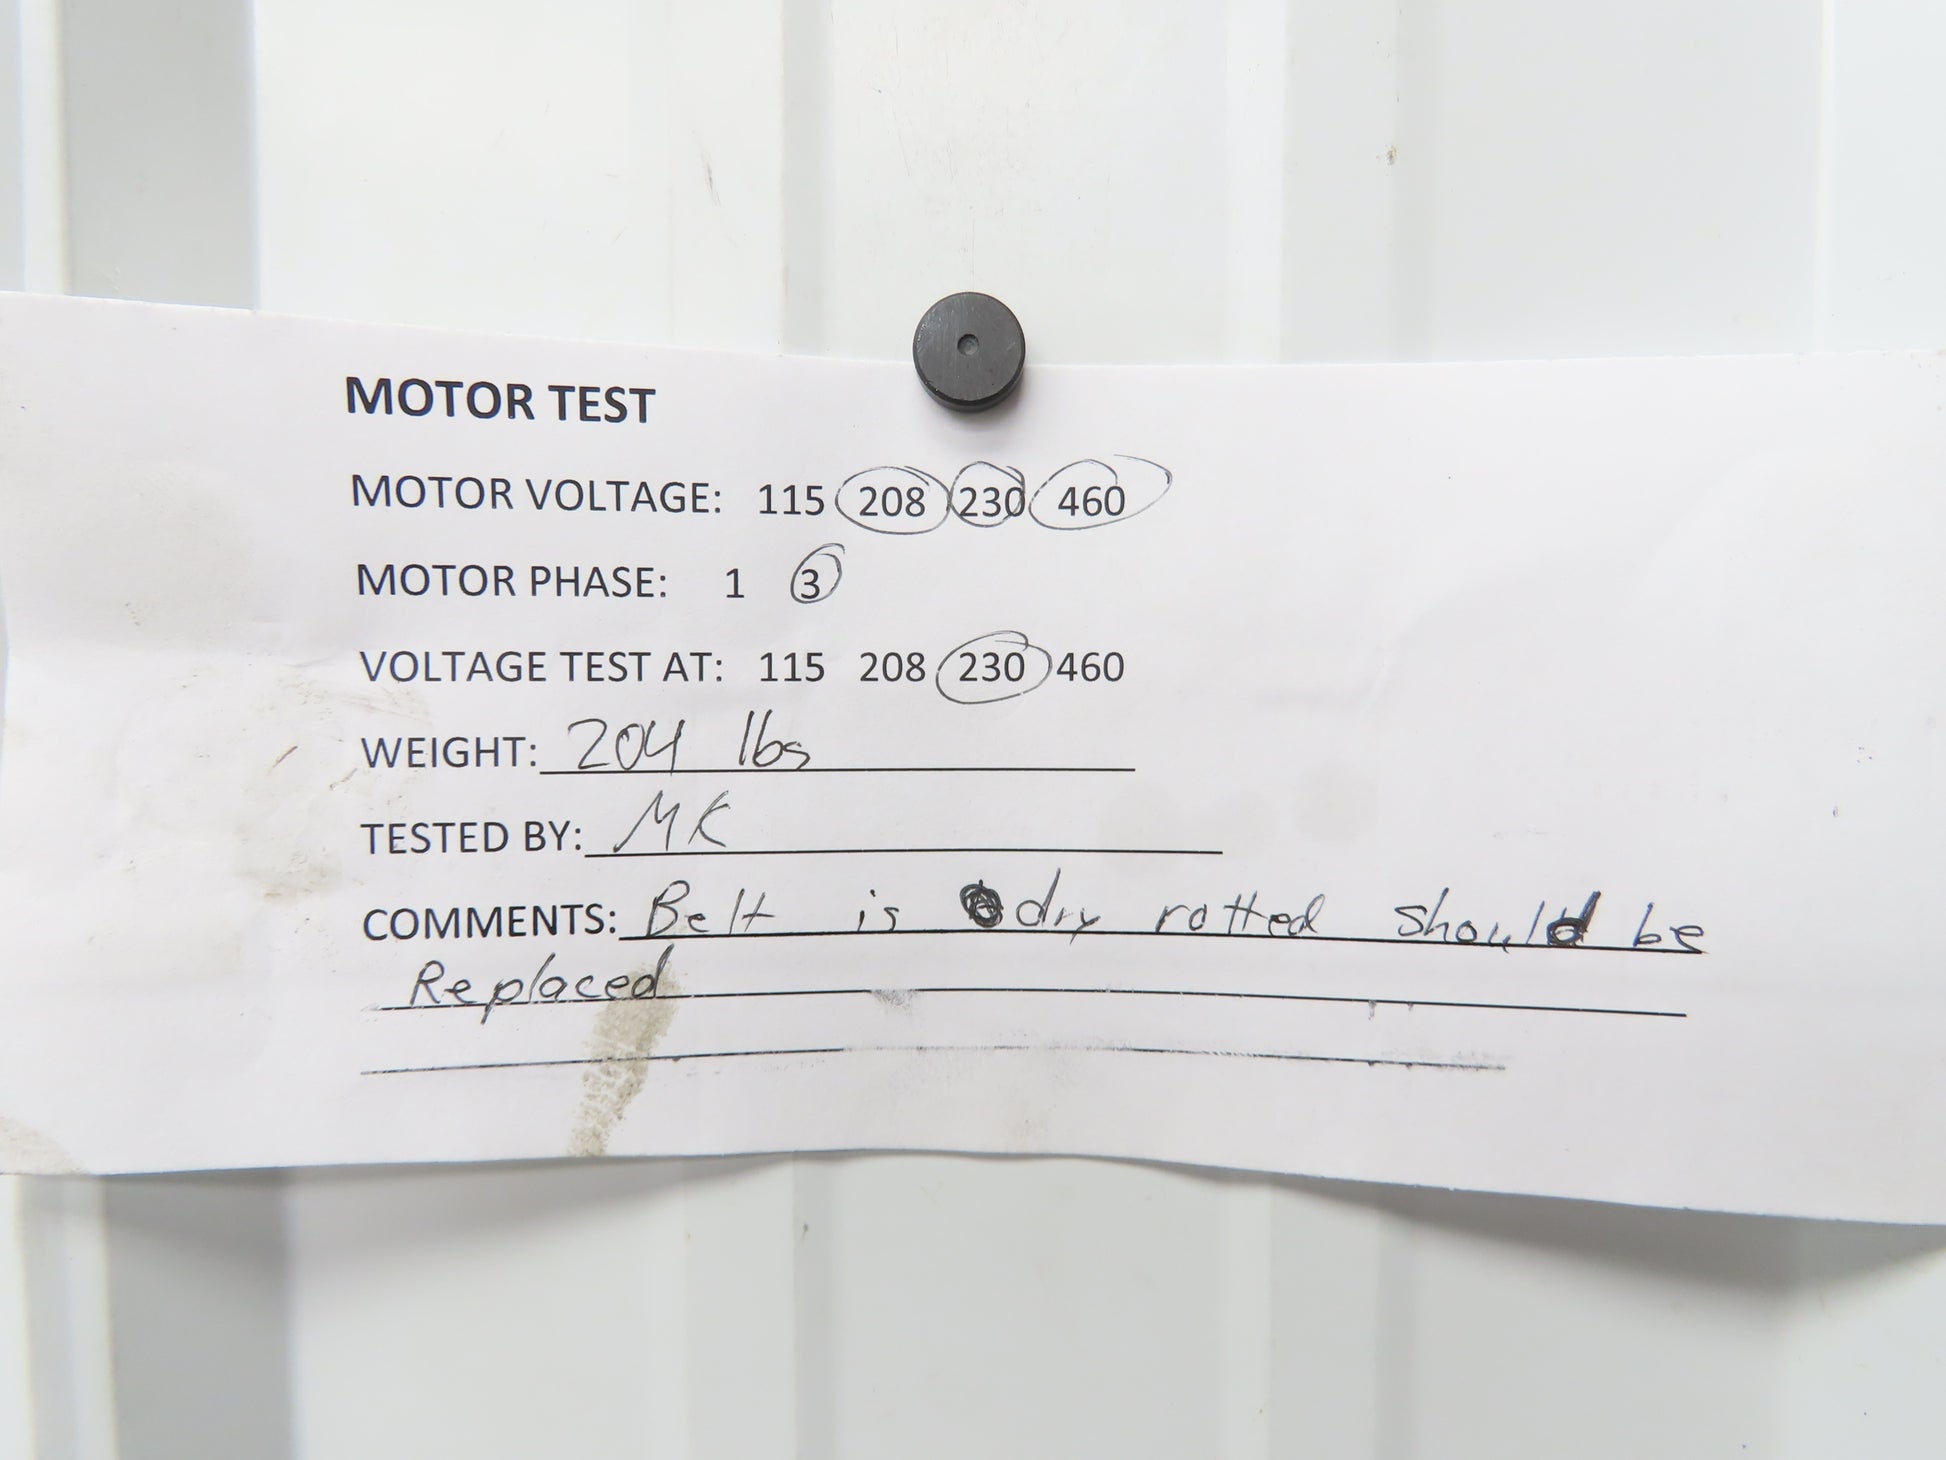 MOTOR TEST
MOTOR VOLTAGE: 115 208 230 460
MOTOR PHASE: 1 3
VOLTAGE TEST AT: 115 208 230 460
WEIGHT: 204 lbs
TESTED BY: MK
COMMENTS: Belt is dry rotted should be
Replaced